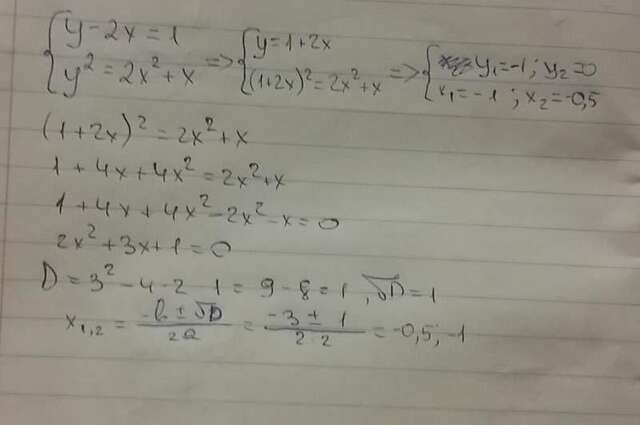 { y - 2x = 1 => { y = 1 + 2x => { y₁ = -1 ; y₂ = 0
{ y² = 2x² + x => { (1+2x)² = 2x² + x => { x₁ = -1 ; x₂ = -0,5
(1 + 2x)² = 2x² + x
1 + 4x + 4x² = 2x² + x
1 + 4x + 4x² - 2x² - x = 0
2x² + 3x + 1 = 0
D = 3² - 4 · 2 · 1 = 9 - 8 = 1 , √D = 1
x₁,₂ = (-b ± √D)/(2a) = (-3 ± 1)/(2 · 2) = -0,5 ; -1